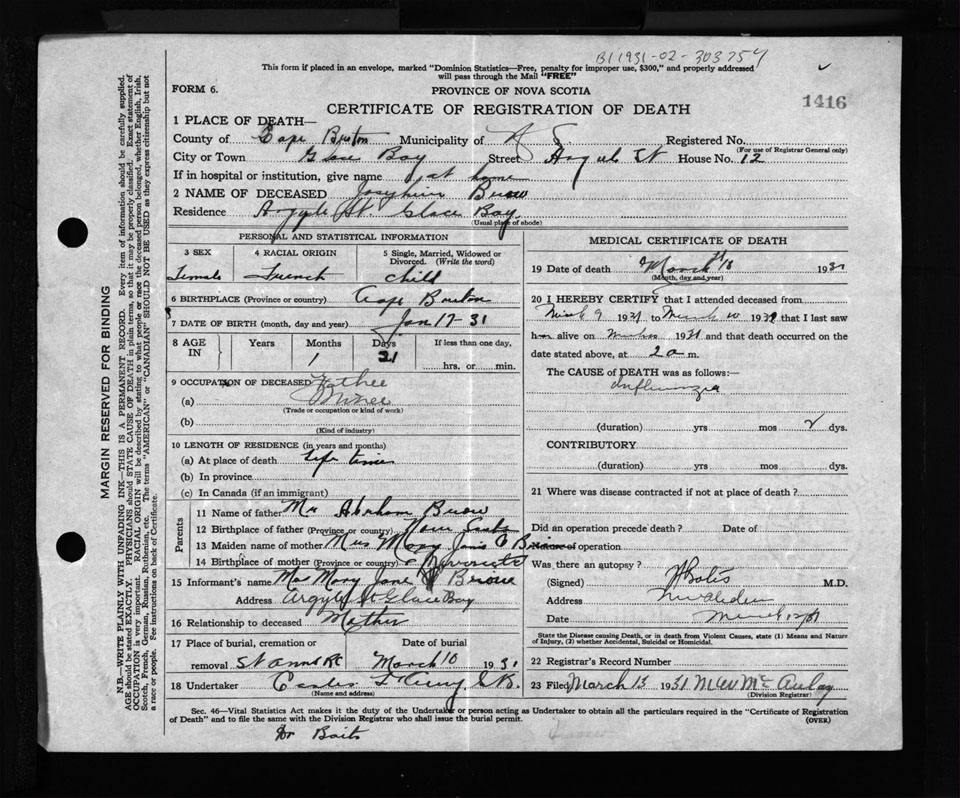 B11931-02-303757
This form if placed in an envelope, marked "Dominion Statistics—Free, penalty for improper use, $300," and properly addressed
will pass through the Mail "FREE"
FORM 6.
PROVINCE OF NOVA SCOTIA
1416
CERTIFICATE OF REGISTRATION OF DEATH
1 PLACE OF DEATH—
County of Cape Breton Municipality of Registered No.
(For use of Registrar General only)
City or Town Glace Bay Street House No. 12
If in hospital or institution, give name at home
2 NAME OF DECEASED Josephine
Residence Argyle St. Glace Bay
(Usual place of abode)
PERSONAL AND STATISTICAL INFORMATION
3 SEX 4 RACIAL ORIGIN 5 Single, Married, Widowed or Divorced. (Write the word)
Female French child
6 BIRTHPLACE (Province or country) Cape Breton
7 DATE OF BIRTH (month, day and year) Jan 17-31
8 AGE IN Years Months Days If less than one day,
1 21 hrs. or min.
9 OCCUPATION OF DECEASED Father
(a) Miner
(Trade or occupation or kind of work)
(b)
(Kind of industry)
10 LENGTH OF RESIDENCE (in years and months)
(a) At place of death life time
(b) In province
(c) In Canada (if an immigrant)
Parents
11 Name of father Mr Abraham
12 Birthplace of father (Province or country)
13 Maiden name of mother Mrs Mary
14 Birthplace of mother (Province or country)
15 Informant's name Mrs Mary Jane
Address Argyle St Glace Bay
16 Relationship to deceased Mother
17 Place of burial, cremation or removal Date of burial
St Anns March 10 1931
18 Undertaker
(Name and address)
MEDICAL CERTIFICATE OF DEATH
19 Date of death March 1931
(Month, day and year)
20 I HEREBY CERTIFY that I attended deceased from
March 9 1931 to March 10 1931 that I last saw
h alive on 1931 and that death occurred on the
date stated above, at 2 a m.
The CAUSE of DEATH was as follows:—
Influenza
(duration) yrs mos 2 dys.
CONTRIBUTORY
(duration) yrs. mos. dys.
21 Where was disease contracted if not at place of death?
Did an operation precede death? Date of
operation
Was there an autopsy?
(Signed) M.D.
Address
Date March
State the Disease causing Death, or in death from Violent Causes, state (1) Means and Nature
of Injury, (2) whether Accidental, Suicidal or Homicidal.
22 Registrar's Record Number
23 Filed March 13 1931 McAulay
(Division Registrar)
Sec. 46—Vital Statistics Act makes it the duty of the Undertaker or person acting as Undertaker to obtain all the particulars required in the "Certificate of Registration
of Death" and to file the same with the Division Registrar who shall issue the burial permit. (OVER)
Dr
MARGIN RESERVED FOR BINDING
N.B.—WRITE PLAINLY WITH UNFADING INK—THIS IS A PERMANENT RECORD. Every item of information should be carefully supplied.
AGE should be stated EXACTLY. PHYSICIANS should STATE CAUSE OF DEATH in plain terms, so that it may be properly classified. Exact statement of
OCCUPATION is very important. RACIAL ORIGIN will be described by stating to what people or race the deceased person belonged, whether English, Irish,
Scotch, French, German, Russian, Ruthenian, etc. The terms "AMERICAN" or "CANADIAN" SHOULD NOT BE USED as they express citizenship but not
a race or people. See instructions on back of Certificate.